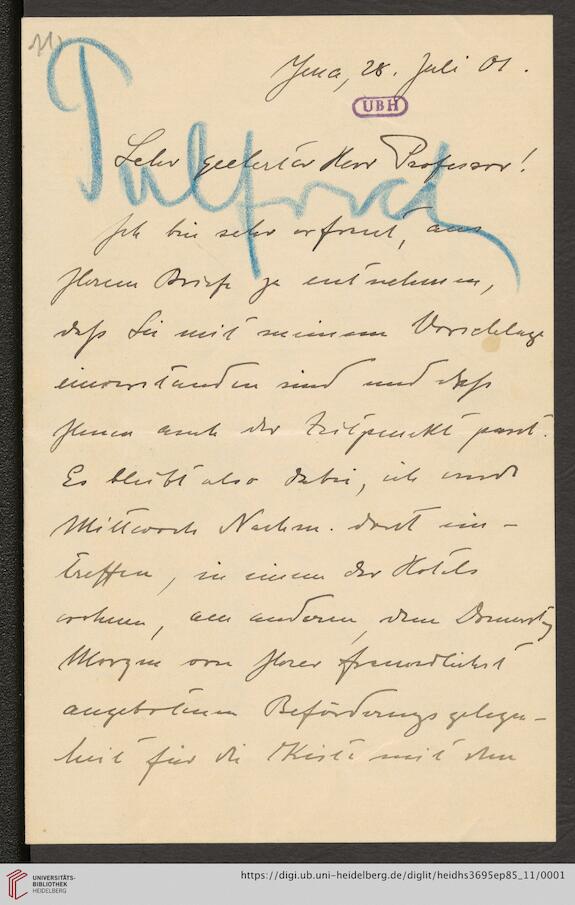 Jena, 28. Juli 01.
UBH
Pulfrich
Sehr geehrter Herr Professor!
Ich bin sehr erfreut, aus
Ihrem Briefe zu entnehmen,
daß Sie mit meinem Vorschlage
einverstanden sind und daß
Ihnen auch der Zeitpunkt passt.
Es bleibt also dabei, ich werde
Mittwoch Nachm. dort ein-
treffen, in einem der Hotels
wohnen, am anderen, dem Donnerstag
Morgen von Ihrer freundlichst
angebotenen Beförderungsgelegen-
heit für die Kiste mit dem
UNIVERSITÄTS-
BIBLIOTHEK
HEIDELBERG
https://digi.ub.uni-heidelberg.de/diglit/heidhs3695ep85_11/0001